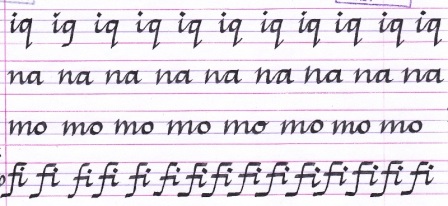 iq ig iq iq iq iq iq iq iq iq iq
na na na na na na na na na
mo mo mo mo mo mo mo mo
fi fi fi fi fi fi fi fi fi fi fi fi fi fi fi